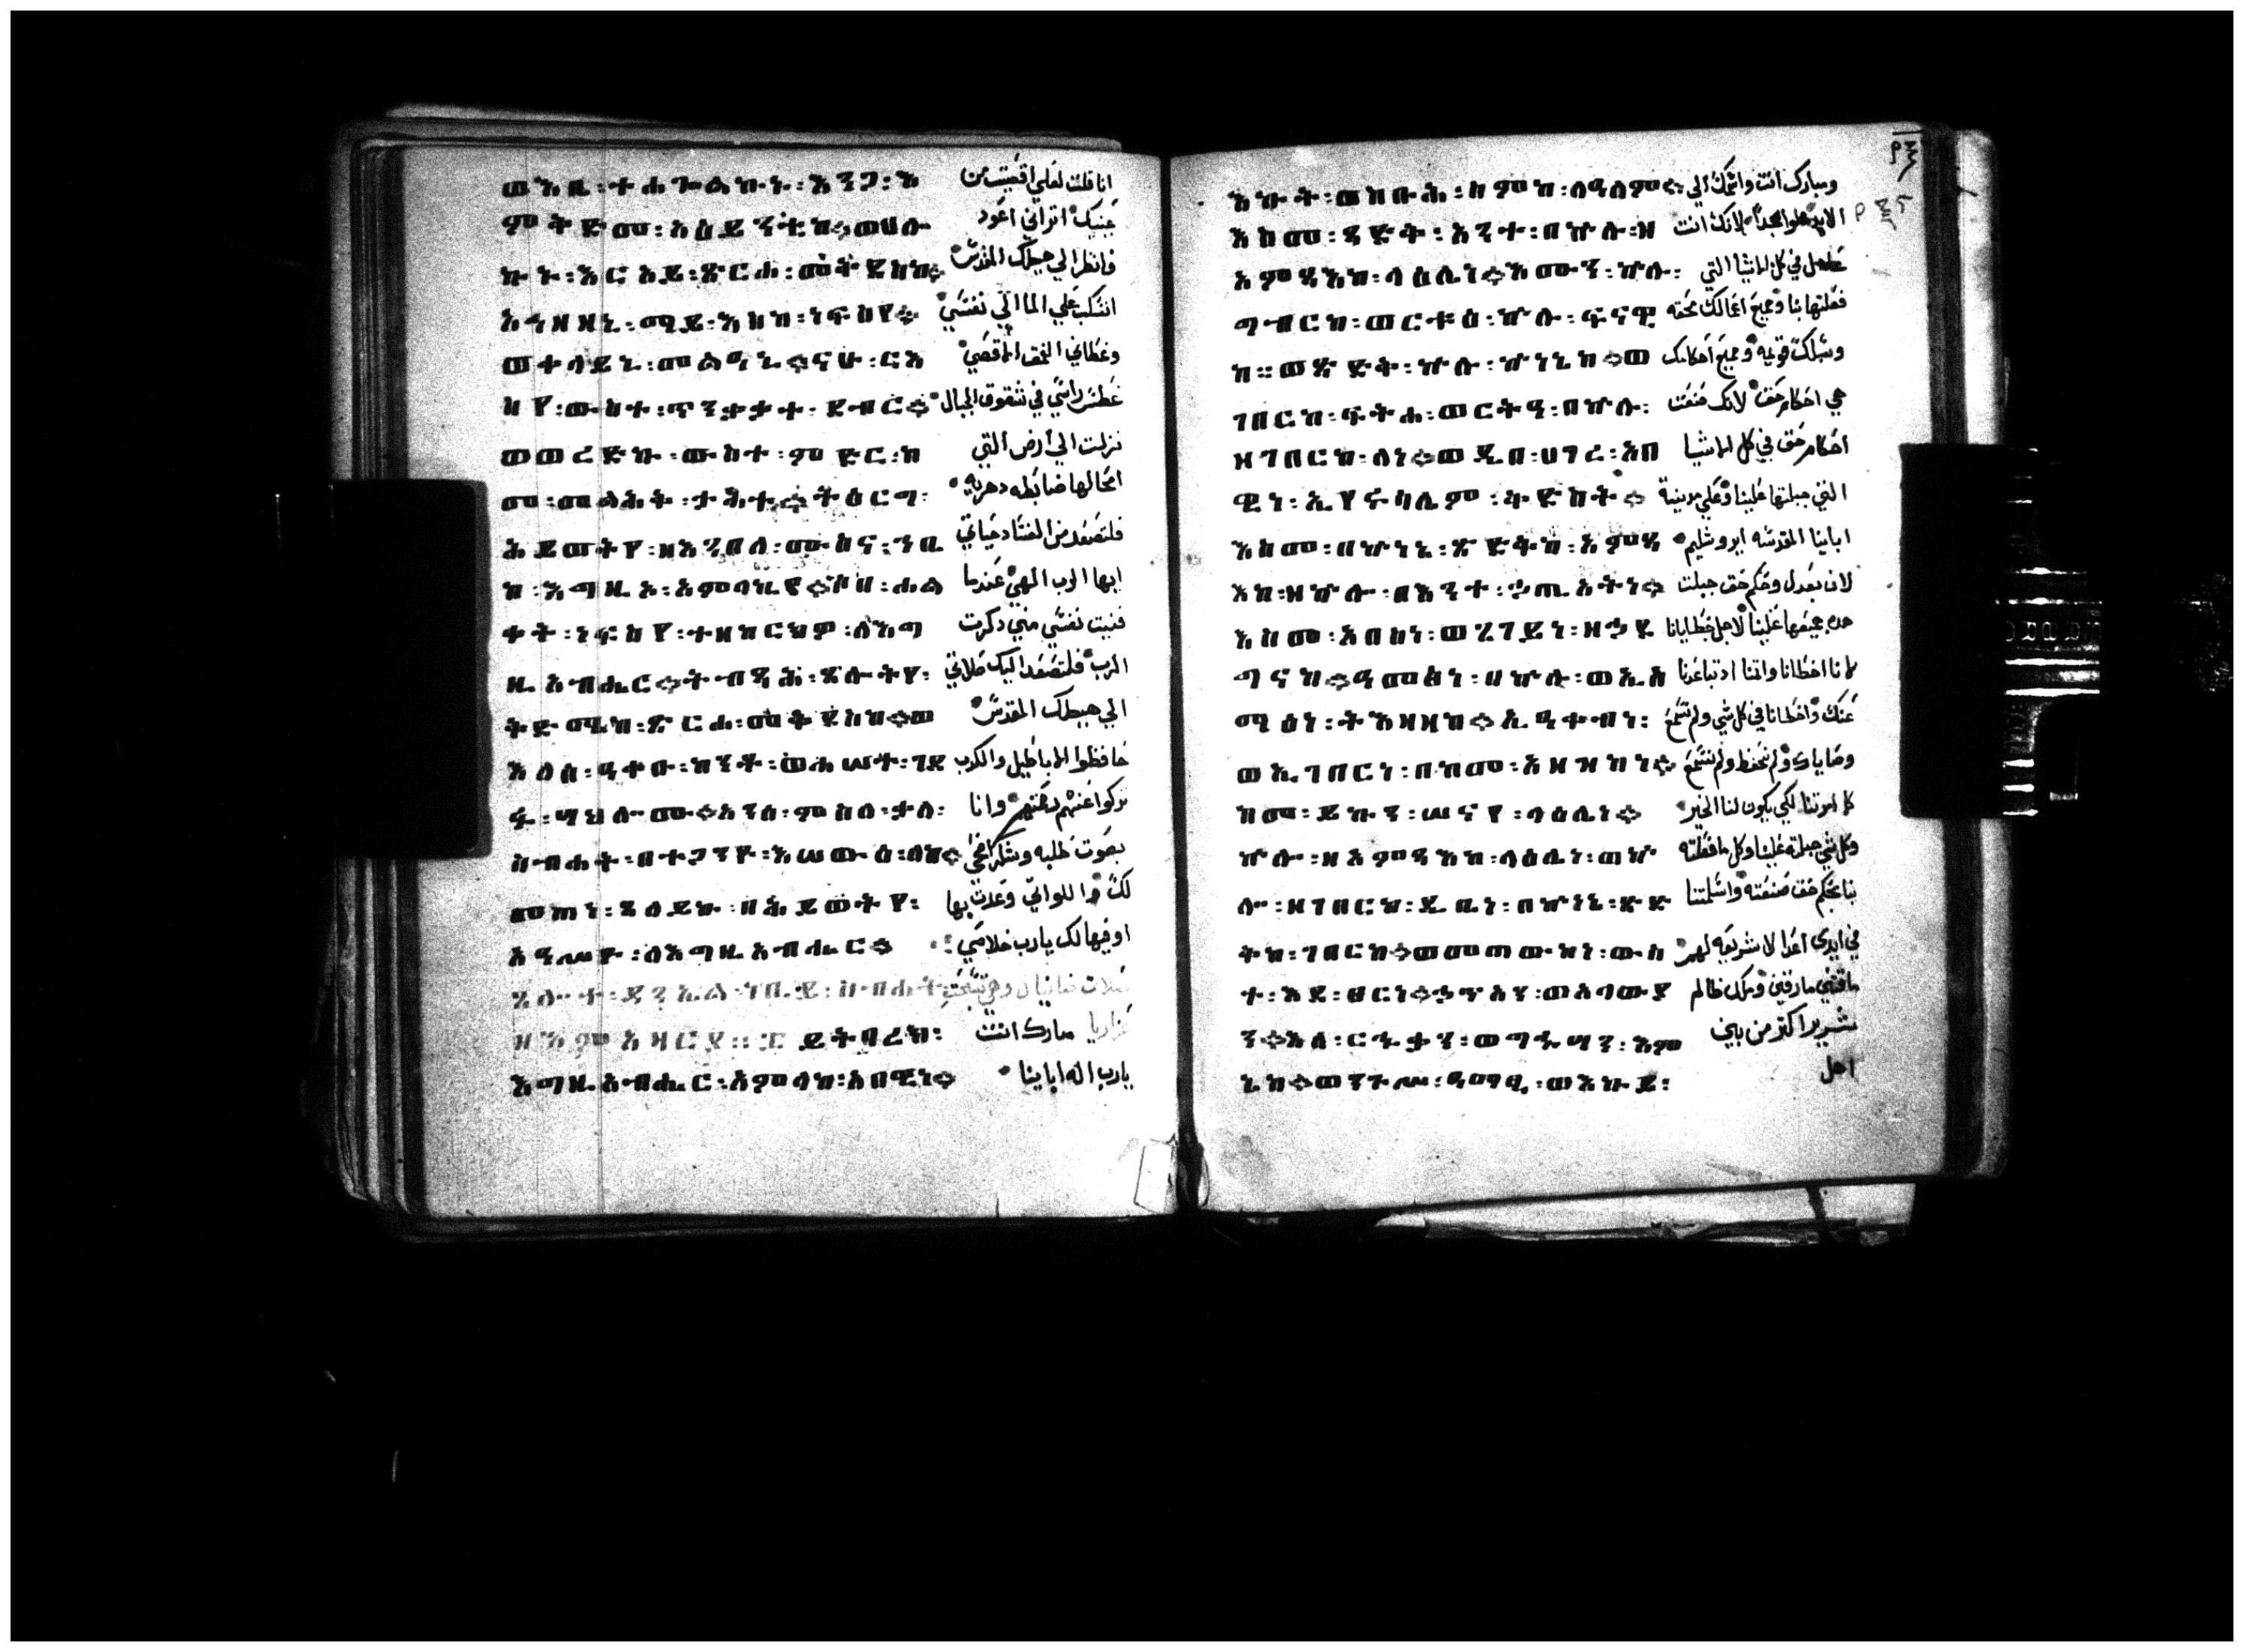 ወአንሰ፡ተሐጐልኩ፡እንጋ፡እ انا قلت لعلي اقصيت من
ምቅድመ፡አዕይንቲከ፨ወሀለ عينيك اتراني اعود
ኩ፡እርአይ፡ጽርሐ፡መቅደስከ፨ فانظر الي هيكلك المقدس
እንዘዘኒ፡ማይ፡እስከ፡ነፍስየ፨ انسكب علي الما الي نفسي
ወተላይኒ፡መልዓኒ፨ርእ وغطاني العمق الاقصي
ስየ፡ውስተ፡ንቅዐተ፡አድባር፨ غطس راسي في شقوق الجبال
ወወረድኩ፡ውስተ፡ምድር፡እ نزلت الي ارض التي
መ፡መልሕቅ፡ታሕት፨ትዕርግ፡ امخالها ضابطه دهريه
ሕይወትየ፡ዘእንበለ፡ሙስና፡ኀቤ فلتصعد من الفساد حياتي
ከ፡እግዚአ፡አምላኪየ፨ሶበ፡ሐል ايها الرب الهي عندما
ቀት፡ነፍስየ፡ተዘከርክዎ፡ለእግ فنيت نفسي مني ذكرت
ዚአብሔር፨ትብጻሕ፡ጸሎትየ፡ الرب فلتصعد اليك صلاتي
ቅድሜከ፡ጽርሐ፡መቅደስከ፨ Ali هيكلك المقدس
እለሰ፡ዓቀቡ፡ከንቶ፡ወሐሰተ፡ገደ حافظوا الاباطيل والكذب
ፉ፡ሣህሎሙ፨አንሰ፡ምስለ፡ቃለ፡ تركوا عنهم رحمتهم وانا
ስብሐት፡በተጋንዮ፡እሠውዕ፡ለከ፨ بصوت طلبه وشكر اضحي
መጠነ፡ጸለይኩ፡በሕይወትየ፡ لك واللواتي وعدت بها
እዔሥዮ፡ለእግዚአብሔር፨ اوفيها لك يارب خلاصي
ጸሎተ፡ዳንኤል፡ነቢይ፡ስብሐት صلات دانيال وهي تسبحة
ዘእምአዛርያ፡፡ ይትባረክ፡ عزاريا مبارك انت
እግዚአብሔር፡አምላከ፡አበዊነ፨ يارب اله اباينا
እኩት፡ወስቡሕ፡ስምከ፡ለዓለም፨ ومبارك انت واسمك الي
እስመ፡ጻድቅ፡አንተ፡በኵሉ፡ዘ الابد مملو مجدا لانك انت
አምጻእከ፡ላዕሌነ፨እሙን፡ኵሉ፡ عادل في كل الاشيا التي
ግብርከ፡ወርቱዕ፡ኵሉ፡ፍናዊ فعلتها بنا وجميع اعمالك محقه
ከ፡፡ወጽድቅ፡ኵሉ፡ኵነኔከ፨ወ وسبلك قويمه وجميع احكامك
ገበርከ፡ፍትሐ፡ወርትዓ፡በኵሉ፡ هي احكام حق لانك صنعت
ዘገበርከ፡ለነ፨ወዲበ፡ሀገረ፡አበ احكام حق في كل الاشيا
ዊነ፡ኢየሩሳሌም፡ቅድስት፨ التي جبلتها علينا وعلي مدينة
እስመ፡በኵነኔ፡ጽድቅከ፡አምጻ اباينا المقدسه ايروشليم
እከ፡ዘኵሎ፡በእንተ፡ኃጢአትነ፨ لان بعدل وحكم حق جبلت
እስመ፡አበስነ፡ወጌገይነ፡ዘኃደ هذه جميعها علينا لاجل خطايانا
ግናከ፨ዓመፅነ፡በኵሉ፡ወኢሰ لاننا اخطانا واثمنا اذ تباعدنا
ማዕነ፡ትእዛዘከ፨ኢዓቀብነ፡ عنك واخطانا في كل شي ولم نسمع
ወኢገበርነ፡በከመ፡አዘዝከነ፨ وصاياك ولم نحفظ ولم نصنع
ከመ፡ይኩን፡ሠናየ፡ላዕሌነ፨ كما امرتنا لكي يكون لنا الخير
ኵሎ፡ዘአምጻእከ፡ላዕሌነ፡ወኵ وكل شي جبلته علينا وكل ما فعلته
ሎ፡ዘገበርከ፡ዲቤነ፡በኵነኔ፡ጽድ بنا بحكم حق صنعته واسلمتنا
ቅከ፡ገበርከ፨ወመጠውከነ፡ውስ في ايدي اعدا لا شريعه لهم
ተ፡እደ፡ፀርነ፨ኃጥአን፡ወዐላውያ مارقين وملك ظالم
ን፨እለ፡ርሑቃን፡ወማዕሣን፡እም شرير اكثر من بين
ኔከ፨ወንጉሥ፡ዓማፂ፡ወእኩይ፡ اهل